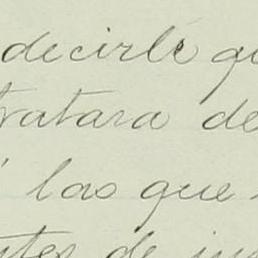 decirle qu
tratara de
las que
ntes de ins